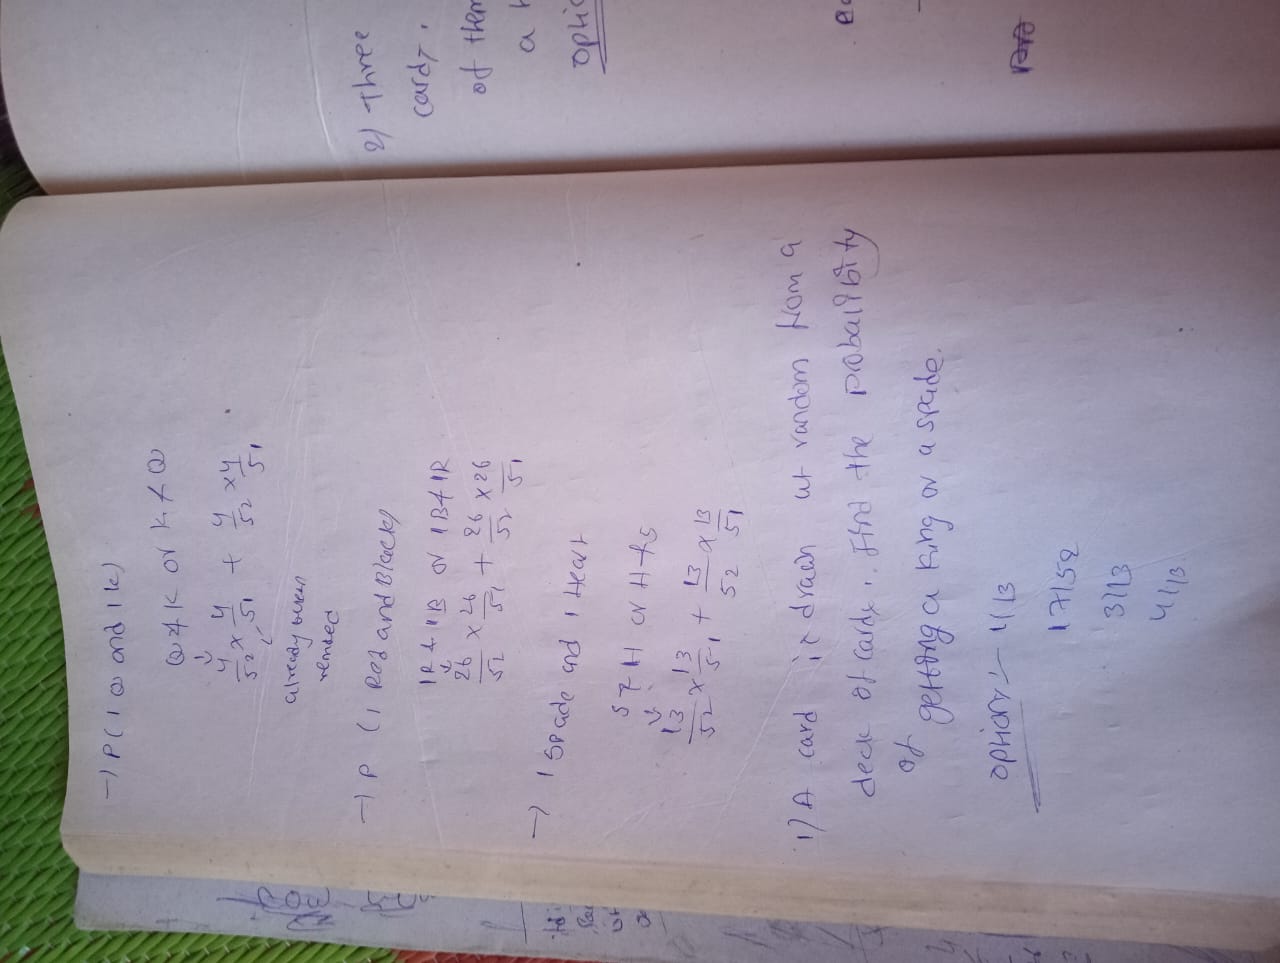 → P(1Q and 1K)
Q & K or K & Q
4/52 x 4/51 + 4/52 x 4/51
already been
removed
→ P (1 Red and Black)
1R & 1B or 1B & 1R
26/52 x 26/51 + 26/52 x 26/51
→ 1 Spade and 1 Heart
S & H or H & S
13/52 x 13/51 + 13/52 x 13/51
1) A card is drawn at random from a
deck of cards. Find the probability
of getting a king or a spade.
option:- 1/13
17/52
3/13
4/13
2) Three
cards
of them
a
optio